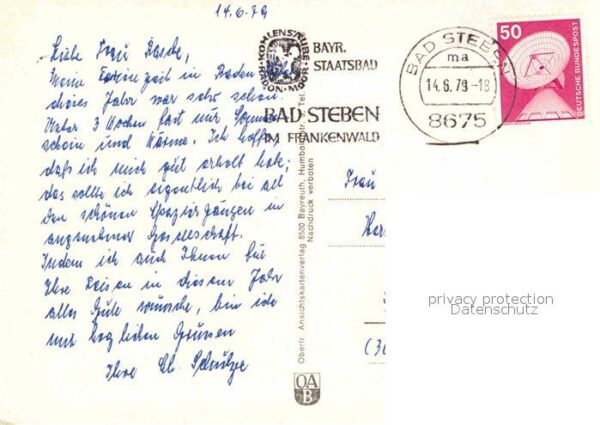 14.6.79
Liebe Frau
Meine zeit in Baden
dieses Jahr war sehr schön.
3 Wochen fast nur Sonnen
schein und Wärme. Ich hoffe,
daß ich mich gut erholt habe;
das sollte ich eigentlich bei all
den schönen Spaziergängen in
angenehmer Gesellschaft.
Indem ich auch Ihnen für
Ihre Reisen in diesem Jahr
alles Gute wünsche, bin ich
mit herzlichen Grüssen
Ihre El. Schulze
KOHLENSÄURE
RADON-MOOR
BAYR.
STAATSBAD
BAD STEBEN
IM FRANKENWALD
BAD STEBEN
ma
14.6.79-18
8675
50
DEUTSCHE BUNDESPOST
Oberfr. Ansichtskartenverlag 8580 Bayreuth, Humboldtstr. Tel.
Nachdruck verboten
Frau
OA
B
privacy protection
Datenschutz